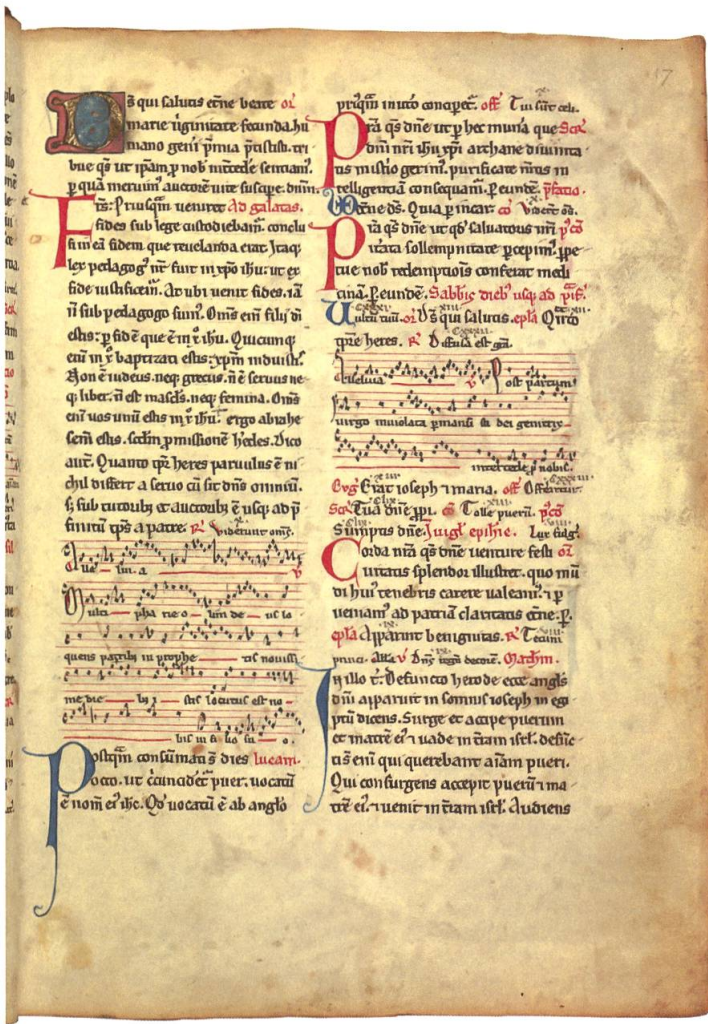 17
Ds̄ qui salutis etn̄e beate or̄
marie uirginitate fecunda hu
mano gen̄i p̄mia p̄stitisti. tri
bue qs̄ ut ip̄am p̄ nob̄ int̄cede sentiam̄.
p quā meruim̄ auctorē uite suscipe. dn̄m.
Fr̄s: Priusquam ueniret Ad galatas.
fides sub lege custodiebam̄. conclu
si in eā fidem que reuelanda erat. Itaq;
lex pedagoḡ nr̄ fuit in xp̄o ih̄u: ut ex
fide iustificem̄. At ubi uenit fides. iā
n̄ sub pedagogo sum̄. Om̄s enī filii d̄i
estis: p fidē que ē in x̄ ih̄u. Quicumq̄
enī in x̄ baptizati estis: xp̄m induistis.
Non ē iudeus. neq; grecus. n̄ ē seruus ne
q; liber. n̄ est mascl̄s. neq; femina. Om̄s
enī uos unum estis in x̄ ih̄u. ergo abrahe
sem̄ estis. scdm̄ p̄missionē h̄edes. Dico
aut̄. Quanto tp̄r heres paruulus ē ni
chil differt a seruo cū sit dn̄s omnium.
s; sub tutorib; et auctorib; ē usq; ad p̄
finitū tp̄s a patre. R̄ Viderunt om̄s.
Alle luia v̄
Multi pha rie o lim de us lo
quens patrib; in prophe tis nouissi
me die b; i stis locutus est no
bis in fi lio su o.
Postq̄m consūmati s̄ dies lucam.
octo. ut c̄cuncidēt̄ puer. uocatū
ē nom̄ ei; ih̄c. Qd̄ uocatū ē ab angl̄o
priq̄m in ut̄o conciperet̄. off̄ Tui sunt celi.
Pr̄a qs̄ dn̄e ut p hec mun̄a que Scr̄
dn̄i nr̄i ih̄u xp̄i archane diuinita
tis misterio gerim̄. purificate m̄tis in
telligentiā consequam̄. p. eundē. p̄fatio.
etn̄e ds̄. Quia p incar. cō Vider̄t om̄s.
Pr̄a qs̄ dn̄e ut qd̄ saluatoris nr̄i p̄ cō
iterata sollempnitate p̄cepim̄. ppe
tue nob̄ redemptiōis conferat medi
cinā. p. eundē. Sabb̄is dieb; usq; ad p̄if.
Vultū tuū. or̄ Ds̄ qui salutis. ep̄la Q̄nto
tp̄re heres. R̄ Diffusa est gr̄a.
Alleluia v̄ Post partum
uirgo inuiolata permansi sti dei genitrix
intercede p nobis.
Evḡ Erat ioseph ⁊ maria. off̄ Offerentur.
Scr̄ Tua dn̄e ppi. cō Tolle puerū. p̄cō
Sumptis dn̄e. In uigl̄ epiphie. Lux fulḡ.
Corda nr̄a qs̄ dn̄e venture festi or̄
uitatis splendor illustret. quo mū
di hui; tenebris carere ualeam̄. ⁊ p
ueniam̄ ad patriā claritatis etn̄e. p.
ep̄la Apparuit benignitas. R̄ Tecum
princi. All̄a v̄ Dn̄s regn̄ decorē. Mathm̄.
In illo t̄. Defuncto herode ecce angl̄s
dn̄i apparuit in somnis ioseph in egi
ptū dicens. Surge et accipe puerum
et matrē ei; ⁊ uade in tr̄am isrl̄. defūc
ti s̄ enī qui querebant aīam pueri.
Qui consurgens accepit puerū ⁊ ma
trē ei;. ⁊ uenit in tr̄am isrl̄. Audiens